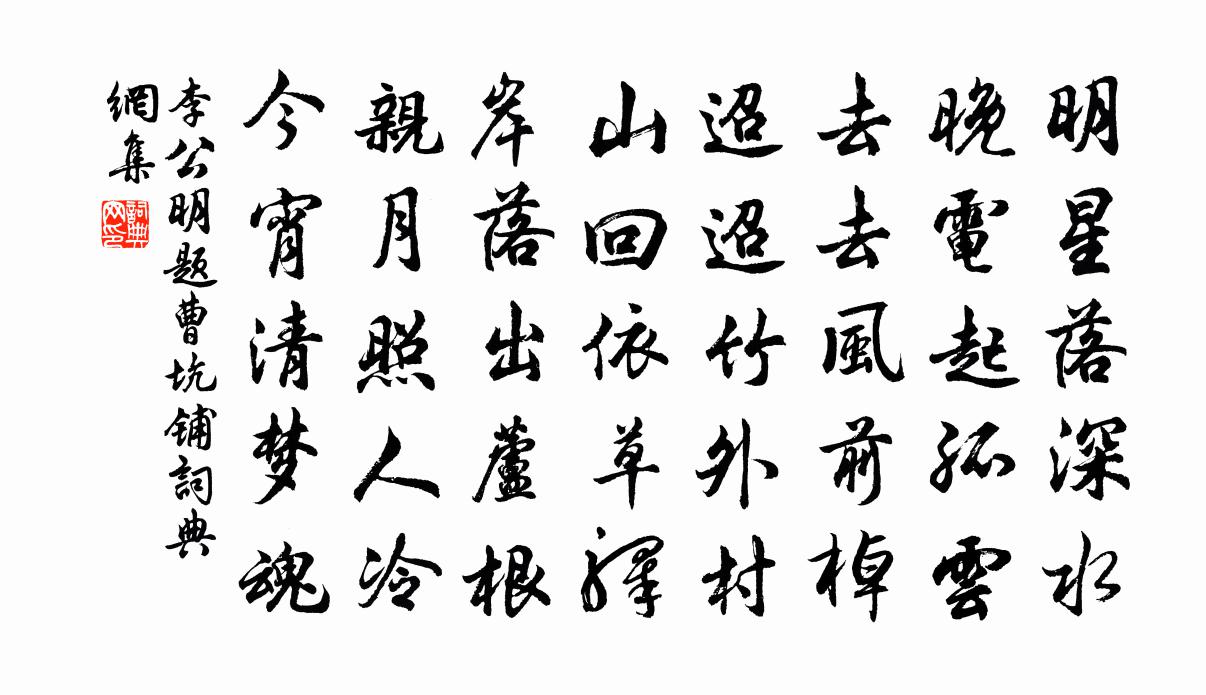 明星落深水
晚電起孤雲
去去風前棹
迢迢竹外村
山回依草驛
岸落出蘆根
親月照人冷
今宵清梦魂
李公明題曹坑鋪詞典
網集
詞典
网印